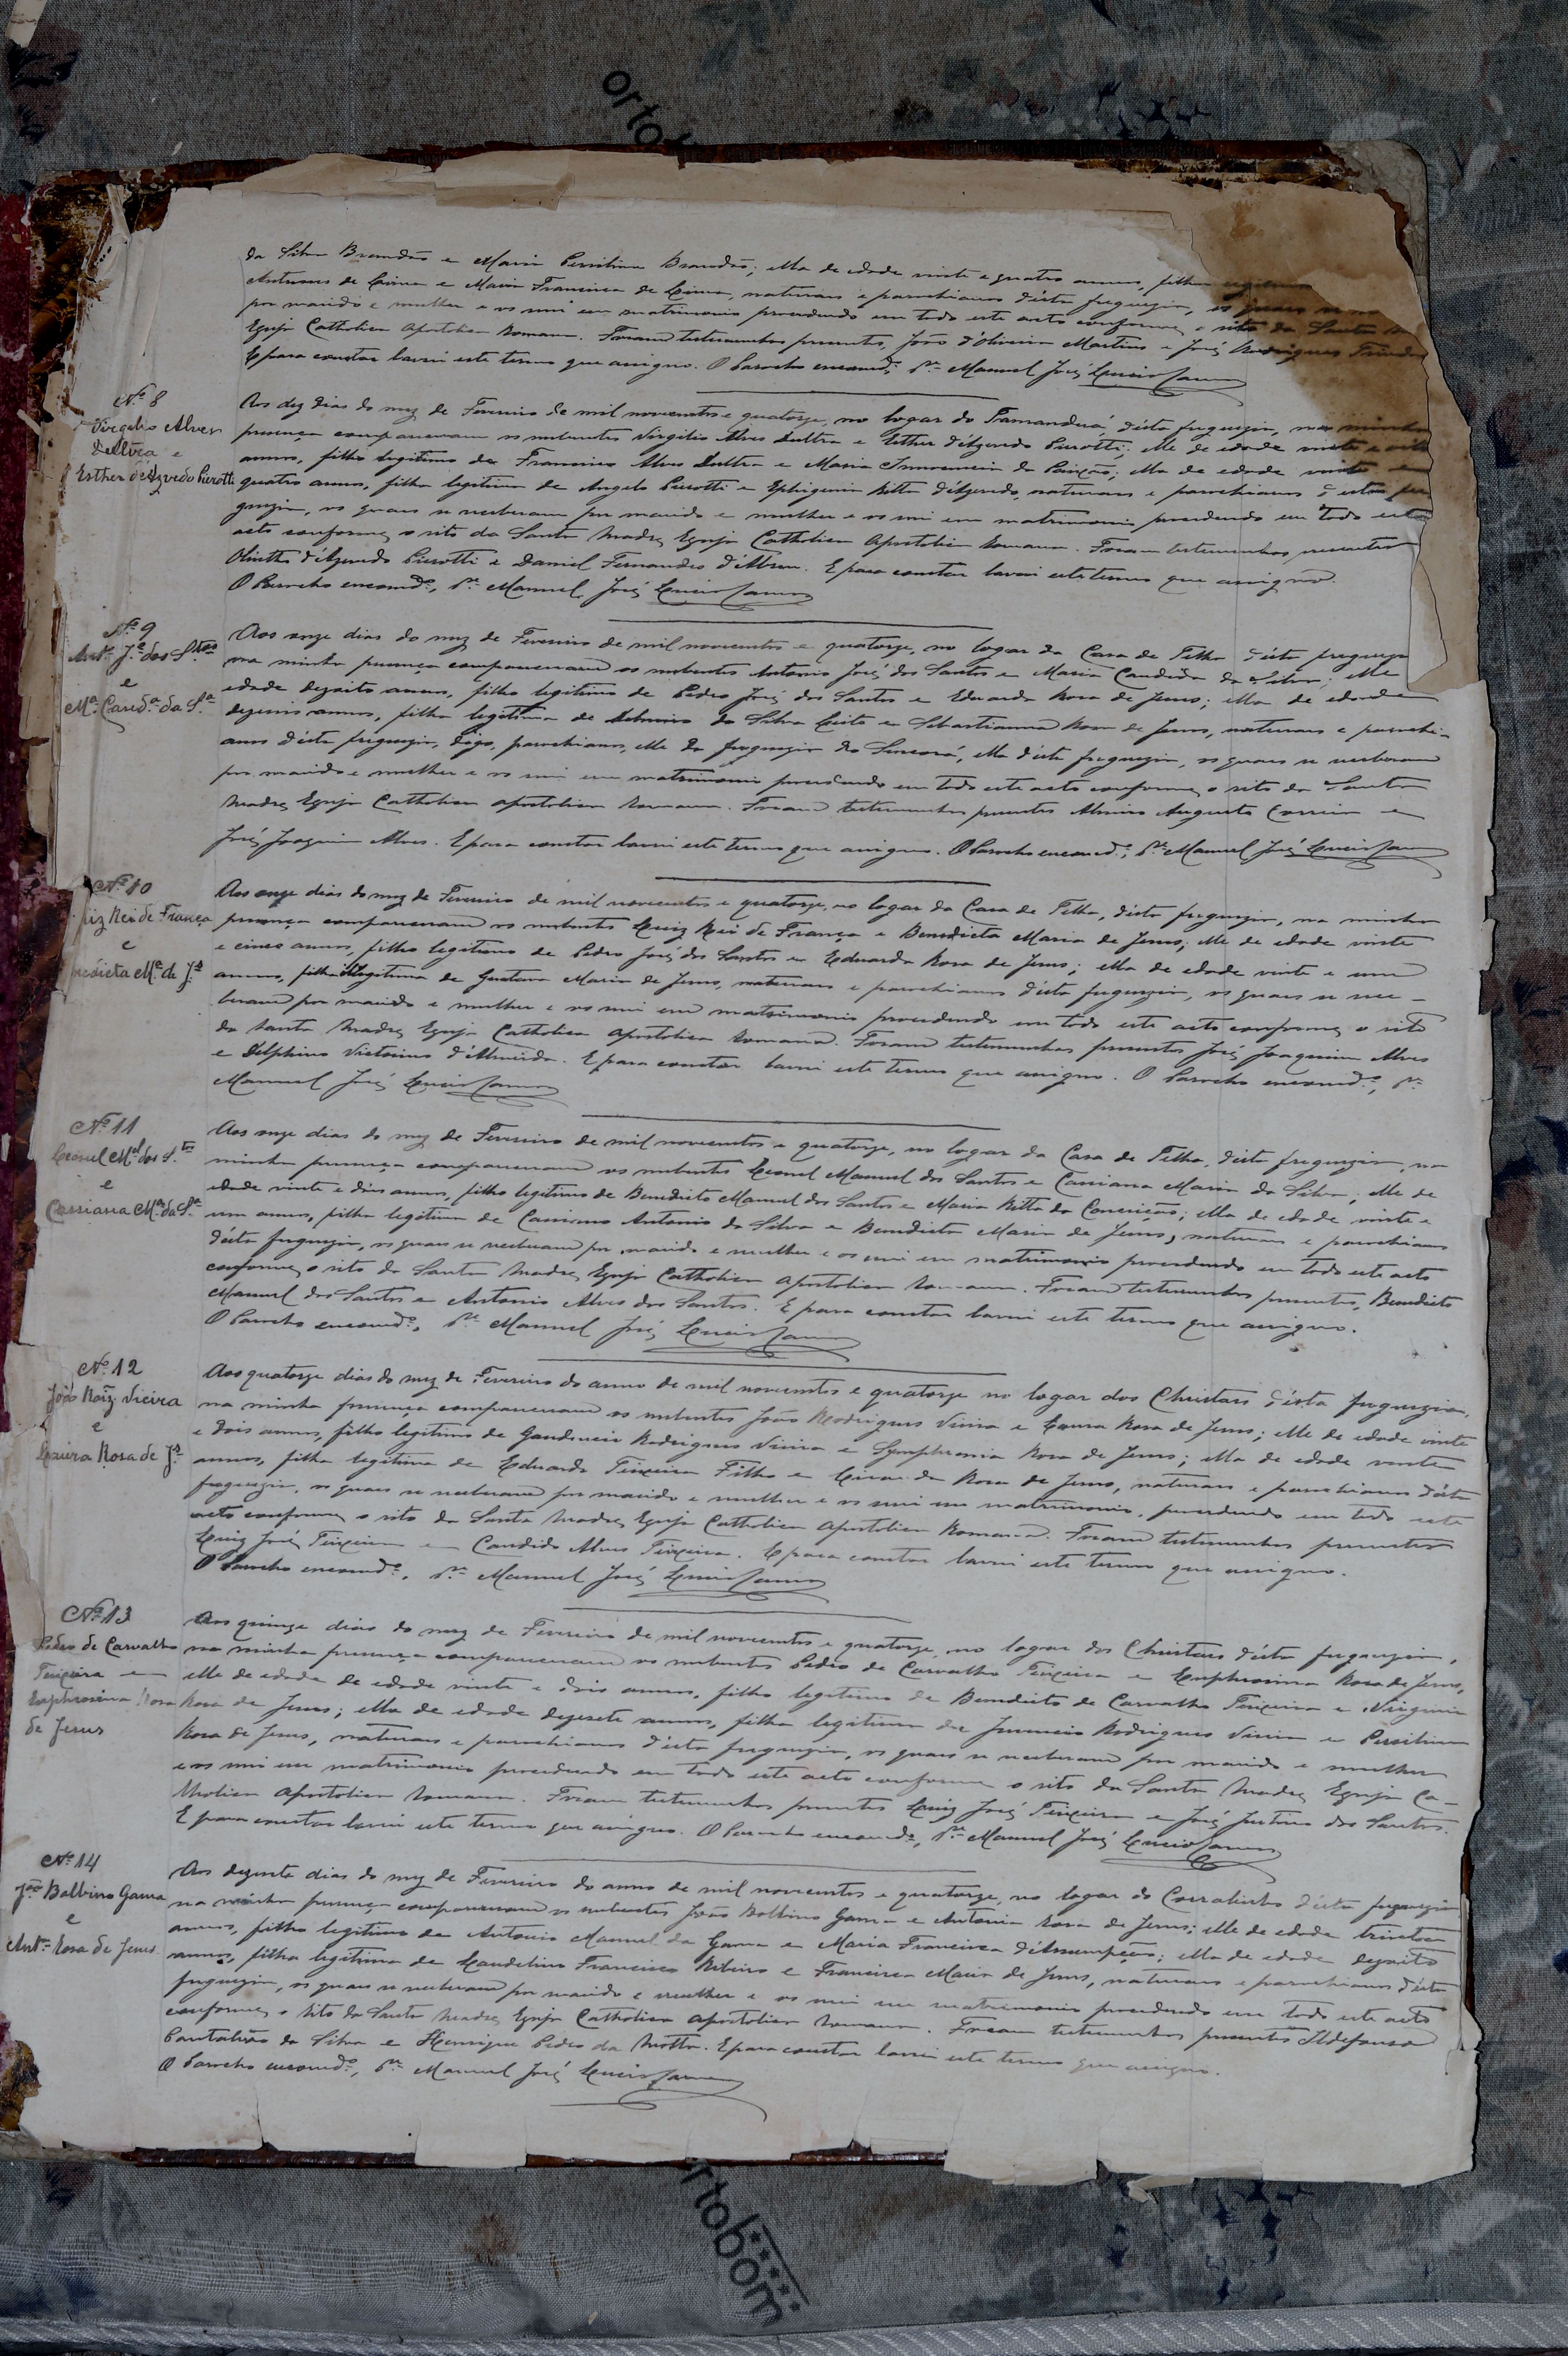 da Silva Brandão e Maria Persilina Brandão; ella de edade vinte e quatro annos, filha
Antunes de Lima e Maria Francisca de Lima, naturaes e parochianos d'ésta freguezia, os quaes se
por marido e mulher e os uni em matrimonio procedendo em todo este acto conforme o rito da Santa
Egreja Catholica Apostolica Romana. Foram testemunhas presentes, João d'Oliveira Martins e José Rodrigues
E para constar lavrei este termo que assigno. O Parocho encomd.º, P.e Manuel José
Nº 8
Virgilio Alves
Dultra e
Esther d'Azvedo Pierotti
Aos dez dias do mez de Fevereiro de mil novecentos e quatorze, no logar do Tamanduá d'ésta freguezia, na minha
presença compareceram os nubentes Virgilio Alves Dultra e Esther d'Azevedo Pierotti; elle de edade vinte e
annos, filho legitimo de Francisco Alves Dultra e Maria Innocencia da Paixão; ella de edade vinte e
quatro annos, filha legitima de Angelo Pierotti e Ephigenia Ritta d'Azevedo, naturaes e parochianos d'esta fre
guezia, os quaes se receberam por marido e mulher e os uni em matrimonio procedendo em todo este
acto conforme o rito da Santa Madre Egreja Catholica Apostolica Romana. Foram testemunhas presentes
Olintho d'Azevedo Pierotti e Daniel Fernandes d'Abreu. E para constar lavrei este termo que assigno.
O Parocho encomd.º, P.e Manuel José
Nº 9
Ant.º J.e dos S.tos
e
M.a Cand.a da S.a
Aos onze dias do mez de Fevereiro de mil novecentos e quatorze, no logar da Casa de Telha d'ésta freguezia
na minha presença compareceram os nubentes Antonio José dos Santos e Maria Candida da Silva; elle
edade dezoito annos, filho legitimo de Pedro José dos Santos e Eduarda Rosa de Jesus; ella de edade
dezeseis annos, filha legitima de da Silva Leite e Sebastianna Rosa de Jesus, naturaes e parochi-
anos d'ésta freguezia, digo, parochianos, elle da freguezia do Sincorá, ella d'ésta freguezia, os quaes se receberam
por marido e mulher e os uni em matrimonio procedendo em todo este acto conforme o rito da Santa
Madre Egreja Catholica Apostolica Romana. Foram testemunhas presentes Augusto Correia e
José Joaquim Alves. E para constar lavrei este termo que assigno. O Parocho encomd.º, P.e Manuel José
Nº 10
Luiz Rei de França
e
nedicta M.a de J.s
Aos onze dias do mez de Fevereiro de mil novecentos e quatorze, no logar da Casa de Telha, d'ésta freguezia, na minha
presença compareceram os nubentes Luiz Rei de França e Benedicta Maria de Jesus; elle de edade vinte
e cinco annos, filho legitimo de Pedro José dos Santos e Eduarda Rosa de Jesus; ella de edade vinte e um
annos, filha illegitima de Maria de Jesus, naturaes e parochianos d'ésta freguezia, os quaes se rece-
beram por marido e mulher e os uni em matrimonio procedendo em todo este acto conforme o rito
da Santa Madre Egreja Catholica Apostolica Romana. Foram testemunhas presentes José Joaquim Alves
e Delphino Victorino d'Almeida. E para constar lavrei este termo que assigno. O Parocho encomd.º, P.e
Manuel José
Nº 11
Leonel M.el dos S.tos
e
Cassiana M.a da S.a
Aos onze dias do mez de Fevereiro de mil novecentos e quatorze, no logar da Casa de Telha, d'ésta freguezia, na
minha presença compareceram os nubentes Leonel Manuel dos Santos e Cassiana Maria da Silva; elle de
edade vinte e dois annos, filho legitimo de Benedicto Manuel dos Santos e Maria Ritta da Conceição; ella de edade vinte e
um annos, filha legitima de Cassiano Antonio da Silva e Benedicta Maria de Jesus, naturaes e parochianos
d'ésta freguezia, os quaes se receberam por marido e mulher e os uni em matrimonio procedendo em todo este acto
conforme o rito da Santa Madre Egreja Catholica Apostolica Romana. Foram testemunhas presentes, Benedicto
Manuel dos Santos e Antonio Alves dos Santos. E para constar lavrei este termo que assigno.
O Parocho encomd.º, P.e Manuel José
Nº 12
João Roiz Vieira
e
Laura Rosa de J.s
Aos quatorze dias do mez de Fevereiro do anno de mil novecentos e quatorze no logar dos Christaes d'ésta freguezia,
na minha presença compareceram os nubentes João Rodrigues Vieira e Laura Rosa de Jesus; elle de edade vinte
e dois annos, filho legitimo de Gaudencio Rodrigues Vieira e Symphronia Rosa de Jesus; ella de edade vinte
annos, filha legitima de Eduardo Teixeira Filho e Rosa de Jesus, naturaes e parochianos d'ésta
freguezia, os quaes se receberam por marido e mulher e os uni em matrimonio, procedendo em todo este
acto conforme o rito da Santa Madre Egreja Catholica Apostolica Romana. Foram testemunhas presentes
Luiz José Teixeira e Candido Alves Teixeira. E para constar lavrei este termo que assigno.
O Parocho encomd.º, P.e Manuel José
Nº 13
Pedro de Carvalho
Teixeira e
Euphrosina Rosa
de Jesus
Aos quinze dias do mez de Fevereiro de mil novecentos e quatorze, no logar dos Christaes d'ésta freguezia,
na minha presença compareceram os nubentes Pedro de Carvalho Teixeira e Euphrosina Rosa de Jesus,
elle de edade de edade vinte e dois annos, filho legitimo de Benedicto de Carvalho Teixeira e Virginia
Rosa de Jesus; ella de edade dezesete annos, filha legitima de Rodrigues Vieira e Persilina
Rosa de Jesus, naturaes e parochianos d'ésta freguezia, os quaes se receberam por marido e mulher
e os uni em matrimonio procedendo em todo este acto conforme o rito da Santa Madre Egreja Ca-
tholica Apostolica Romana. Foram testemunhas presentes Luiz José Teixeira e José Justino dos Santos.
E para constar lavrei este termo que assigno. O Parocho encomd.º, P.e Manuel José
Nº 14
J.ão Balbino Gama
e
Ant.a Rosa de Jesus
Aos dezesete dias do mez de Fevereiro do anno de mil novecentos e quatorze, no logar do d'ésta freguezia
na minha presença compareceram os nubentes João Balbino Gama e Antonia Rosa de Jesus; elle de edade trinta
annos, filho legitimo de Antonio Manuel da Gama e Maria Francisca d'Assumpção; ella de edade dezoito
annos, filha legitima de Francisco Ribeiro e Francisca Maria de Jesus, naturaes e parochianos d'ésta
freguezia, os quaes se receberam por marido e mulher e os uni em matrimonio procedendo em todo este acto
conforme o rito da Santa Madre Egreja Catholica Apostolica Romana. Foram testemunhas presentes Ildefonso
Pantaleão da Silva e Henrique Pedro da Motta. E para constar lavrei este termo que assigno.
O Parocho encomd.º, P.e Manuel José
ortobom